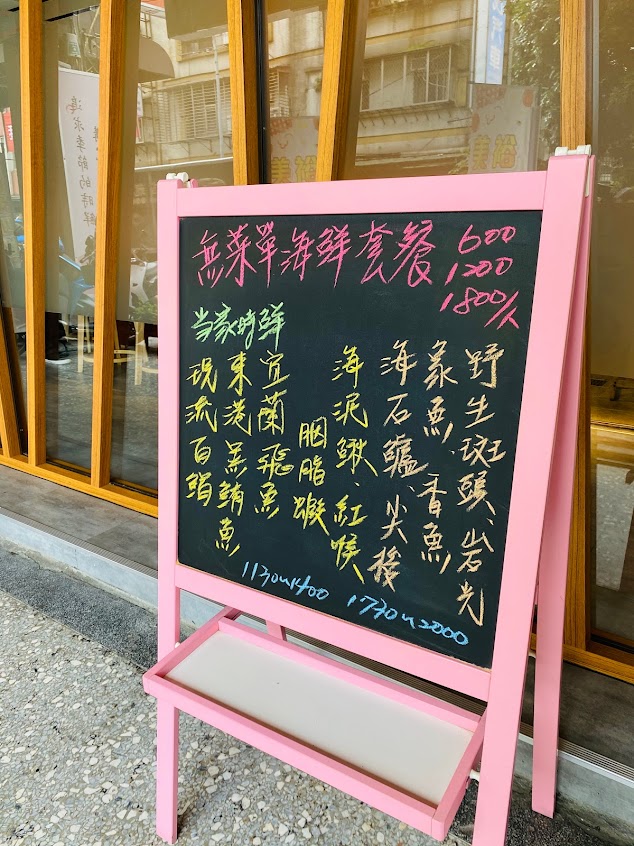 無菜單海鮮套餐 600
1200
1800/人
当家時鮮
野生斑頭、岩光
象魚、香魚
海石鱸、尖梭
海泥鰍、紅喉
胭脂蝦
宜蘭飛魚
東港黑鮪魚
現流白鯧
1130~1400 1730~2000
尋求季節的時鮮